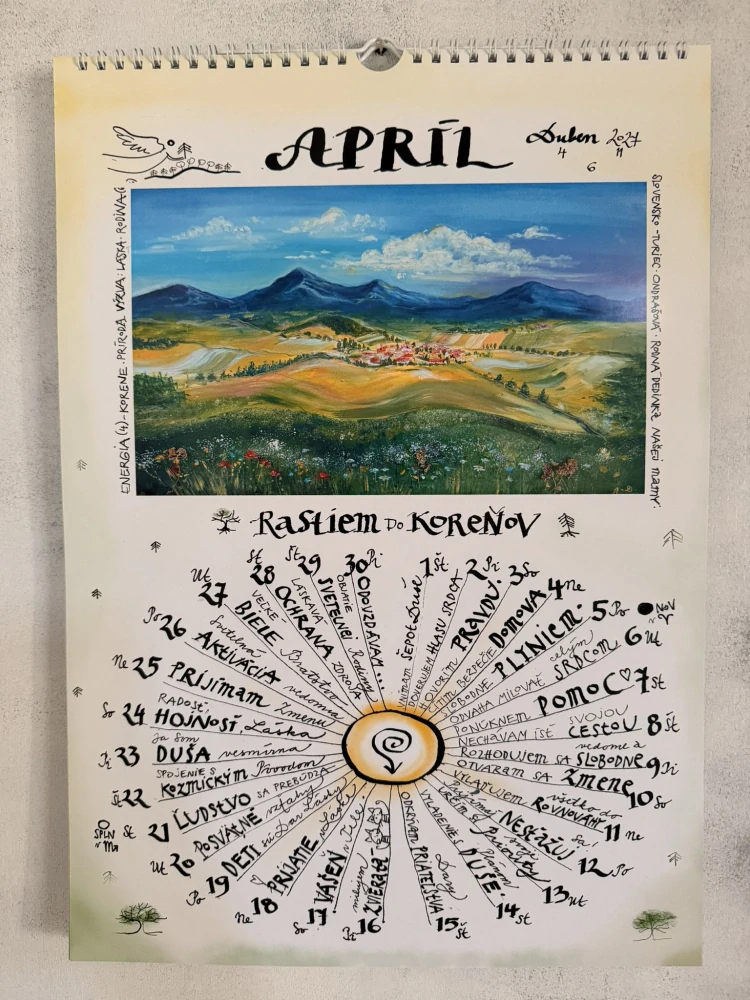 APRÍL
Duben 2027
4 11
6
ENERGIA (4) - KORENE · PRÍRODA · VÝZVA · LÁSKA · RODINA
SLOVENSKO · TURIEC · ONDRAŠOVÁ · RODNÁ DEDINKA NAŠEJ MAMY.
RASTIEM DO KOREŇOV
1 Št VNÍMAM ŠEPOT Duší
2 Pi DÔVERUJEM HLASU SRDCA
3 So HOVORÍM PRAVDU
4 Ne CÍTIM BEZPEČIE DOMOVA
5 Po SLOBODNE PLYNIEM
NOV v
6 Ut ODVAHA MILOVAŤ celým SRDCOM
7 St PONÚKNEM POMOC
8 Št NECHÁVAM ÍSŤ SVOJOU CESTOU
9 Pi ROZHODUJEM SA vedome a SLOBODNE
10 So OTVÁRAM SA Zmene
11 Ne VYLAĎUJEM všetko do ROVNOVÁHY
12 Po NESŤAŽUJ Sa!
13 Ut moje PRIORITY
14 St VYLADENIE S Planom DUŠE
15 Št ODKRÝVAM Dary PRIATEĽSTVA
16 Pi milujem ZVIERATÁ
17 So VÁŠEŇ v Tele
18 Ne PRIJATIE
19 Po DETI sú Dar Lásky
20 Ut POSVÄTNÉ vzťahy
21 St ĽUDSTVO SA PREBÚDZA
SPLN v
22 Št SPOJENIE S KOZMICKÝM Pôvodom
23 Pi Ja Som DUŠA vesmírna
24 So RADOSŤ, HOJNOSŤ, Láska
25 Ne PRIJÍMAM Zmenu
26 Po Svetelná AKTIVÁCIA vedomia
27 Ut VEĽKÉ BIELE Bratstvo
28 St LÁSKAVÁ OCHRANA ZDROJA
29 Št OBJATIE SVETELNEJ Rodiny
30 Pi ODOVZDÁVAM...